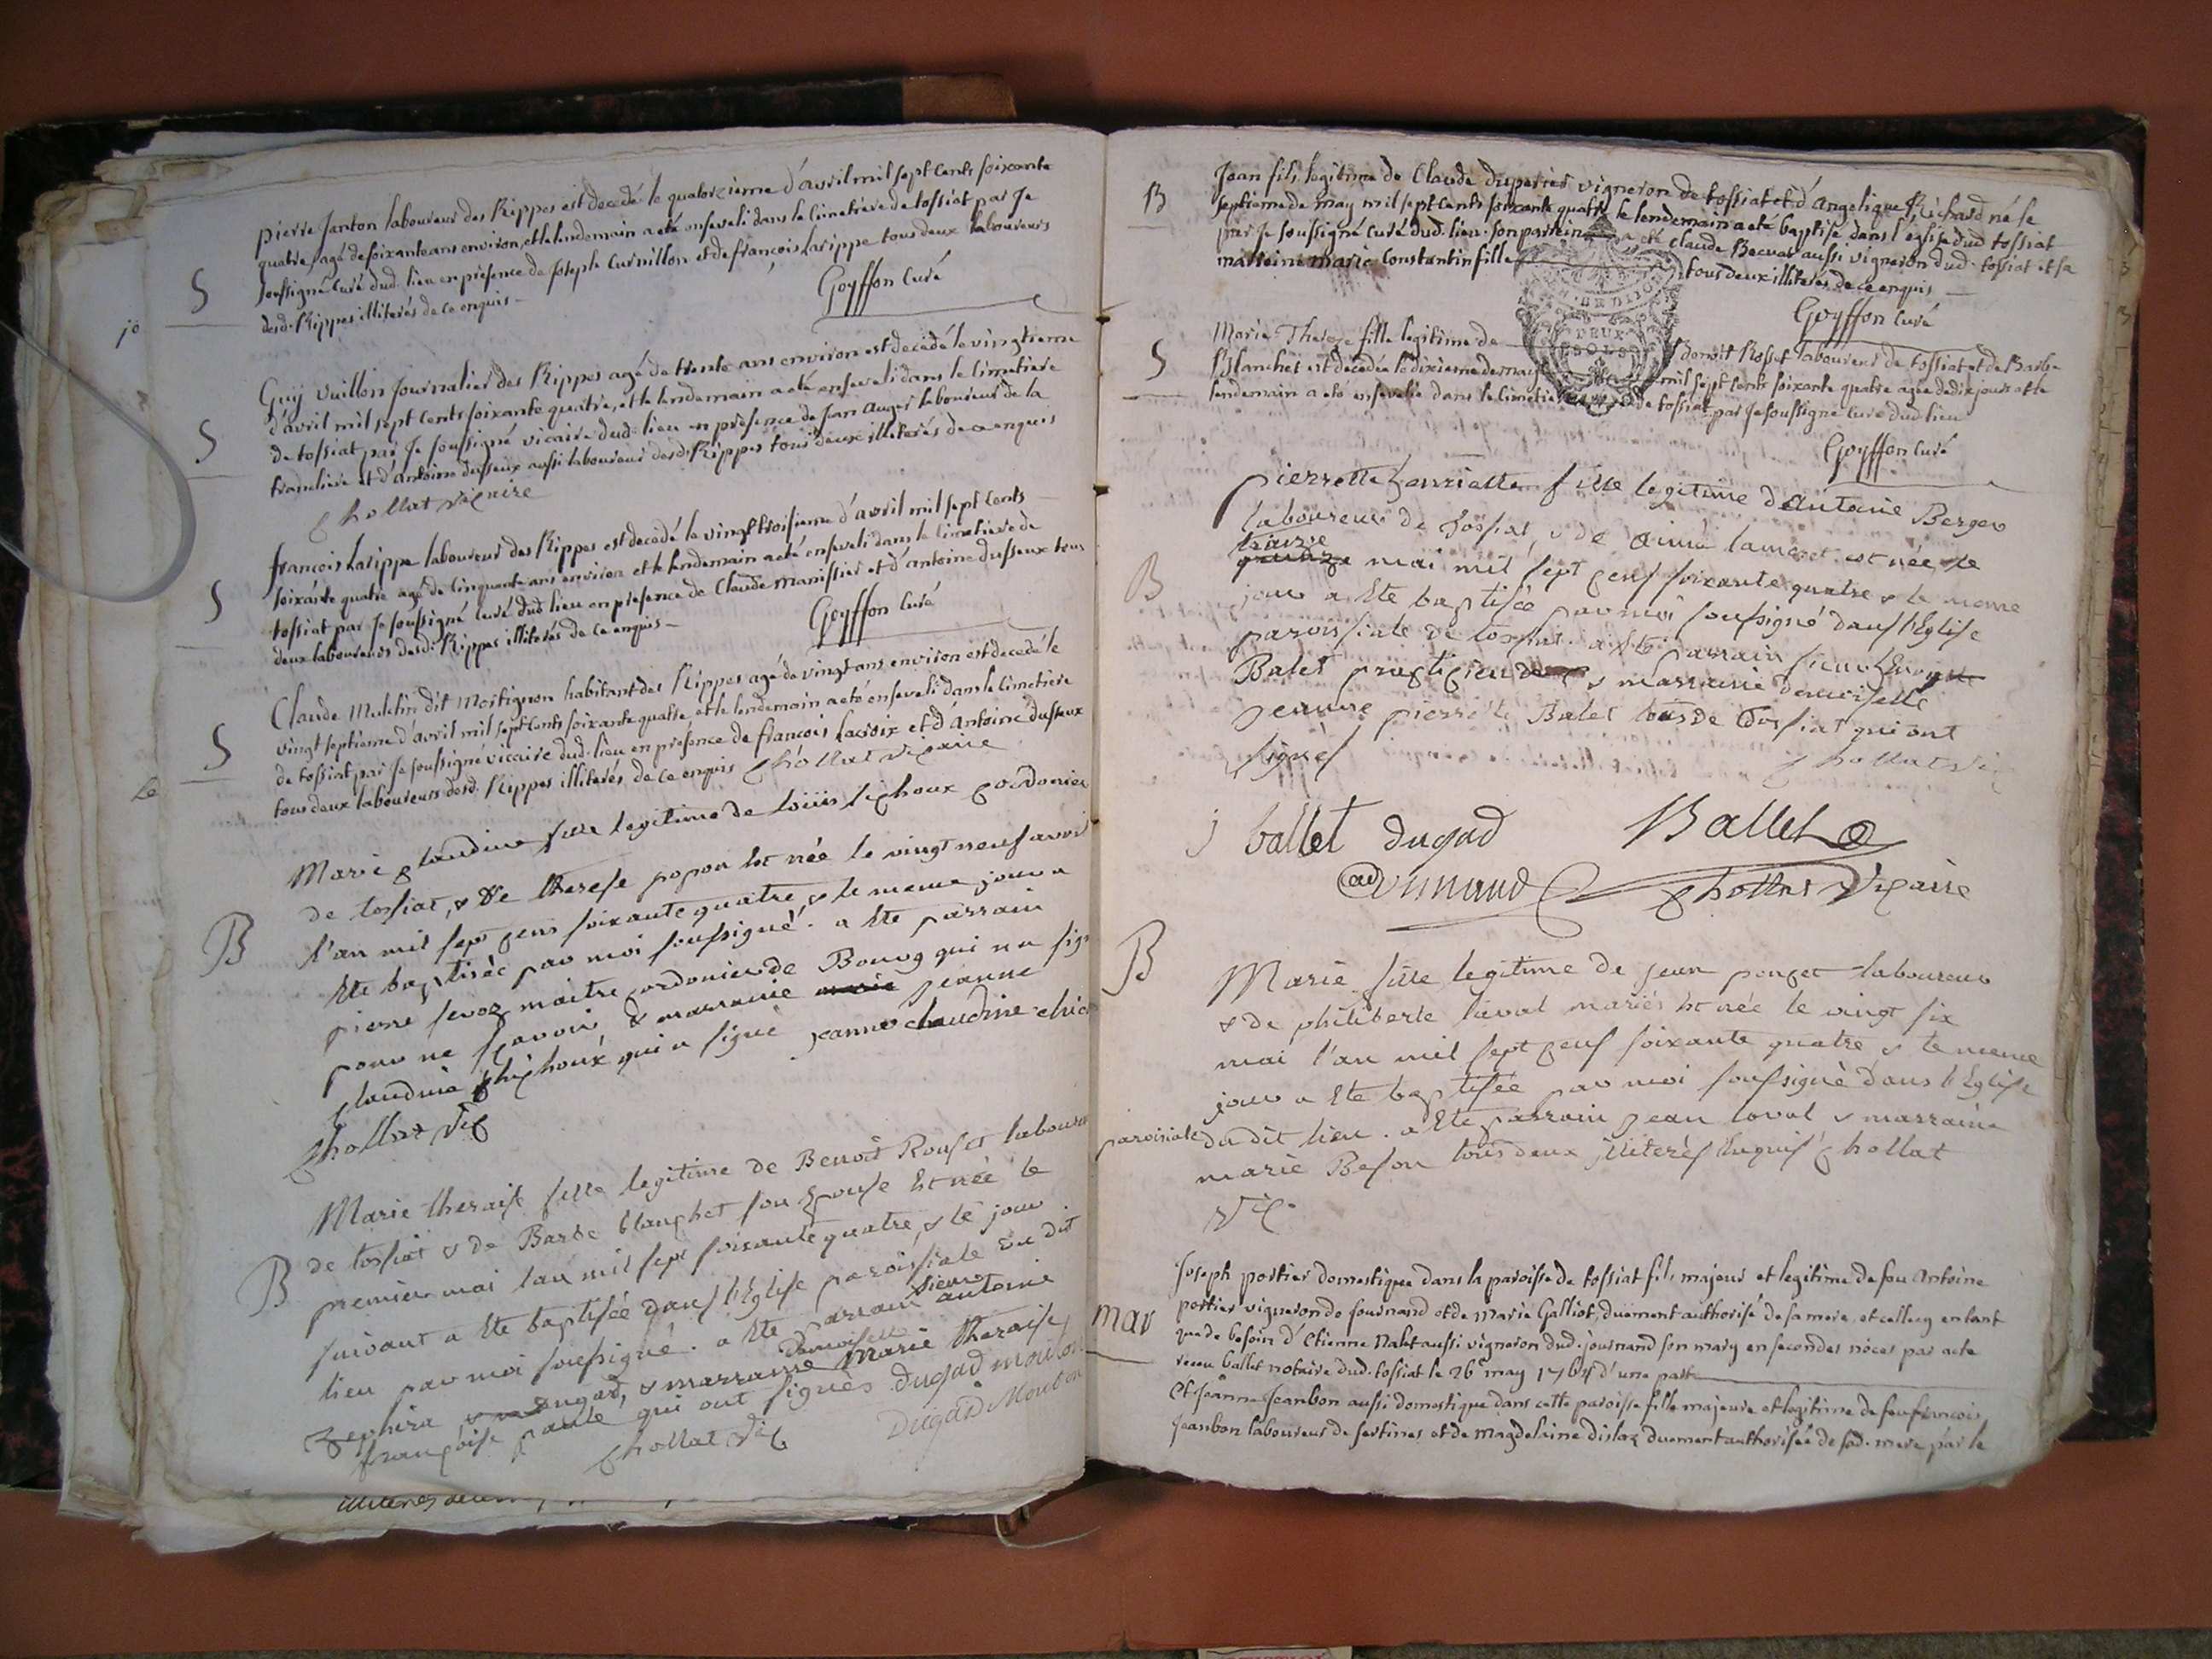 pierre Janton laboureur des Rippes est decedé le quatorzieme d'avril mil sept cents soixante
quatre, agé de soixante ans environ, et le lendemain a eté enseveli dans le cimetiere de tossiat par Je
S
soussigné curé dud. lieu en presence de Joseph Curnillon et de francois larippe tous deux laboureurs
desd. Rippes illiterés de ce enquis
Goyffon Curé
Guy vuillon Journalier des Rippes agé de trente ans environ est decedé le vingtieme
d'avril mil sept cents soixante quatre, et le lendemain a eté enseveli dans le cimetiere
S
de tossiat par Je soussigné vicaire dud. lieu en presence de Jean auger laboureur de la
trancliere et d'antoine dusseux aussi laboureur desd. Rippes tous deux illiterés de ce enquis
Chollat vicaire
francois larippe laboureur des Rippes est decedé le vingt troisieme d'avril mil sept cents
soixante quatre agé de cinquante ans environ et le lendemain a eté enseveli dans le cimetiere de
S
tossiat par Je soussigné curé dud. lieu en presence de Claude manissier et d'antoine dusseux tous
deux laboureurs desd. Rippes illiterés de ce enquis
Goyffon Curé
Claude dit habitant des Rippes agé de vingt ans environ est decedé le
vingt septieme d'avril mil sept cents soixante quatre, et le lendemain a eté enseveli dans le cimetiere
S
de tossiat par Je soussigné vicaire dud. lieu en presence de francois lacroix et d'Antoine dusseux
tous deux laboureurs desd. Rippes illiterés de ce enquis Chollat vicaire
Marie claudine fille legitime de loüis cordonier
de tossiat, & de therese popon est née le vingt neuf avril
B
l'an mil sept cens soixante quatre, & le meme jour a
ete baptisée par moi soussigné. a ete parrain
pierre maitre cordonier de Bourg qui n'a sig
pour ne sçavoir, & marraine marie jeanne
claudine qui a signé jeanne claudine
Chollat Vic
Marie theraise fille legitime de Benoit Rousset labour
de tossiat & de Barbe blanchet son epouse est née le
B
premier mai l'an mil sept soixante quatre, & le jour
suivant a ete baptisée dans l'Eglise paroissiale du dit
lieu par moi soussigné. a ete parrain sieur antoine
zephira dugad, & marraine demoiselle Marie theraise
françoise qui ont signés. dugad mouton
Chollat Vic
Dugad Mouton
B
Jean fils legitime de Claude duperier vigneron de tossiat et d'angelique Richard né le
septieme de may mil sept cents soixante quatre le lendemain a eté baptisé dans l'eglise dud. tossiat
par Je soussigné curé dud. lieu. son parrein a eté Claude aussi vigneron dud. tossiat et sa
marreine marie Constantin fille tous deux illiterés de ce enquis
Goyffon Curé
Marie Thereze fille legitime de benoit Rosset laboureur de tossiat et de Barbe
S
Blanchet est decedée le dixieme de may mil sept cents soixante quatre agée de dix jours et le
lendemain a eté ensevelie dans le cimetiere de tossiat par Je soussigné curé dud. lieu
Goyffon Curé
pierrette henriette fille legitime d'antoine Berger
laboureur de tossiat, & de aimée est née le
treize
quinze mai mil sept cens soixante quatre & le meme
B
jour a ete baptisée par moi soussigné dans l'Eglise
paroissiale de tossiat. a ete parrain sieur
Balet praticien & marraine demoiselle
jeanne pierrette Balet tous de tossiat qui ont
signés
Chollat Vic
j ballet dugad Ballet
Chollat Vicaire
B
Marie fille legitime de jean poncet laboureur
& de philiberte mariés est née le vingt six
mai l'an mil sept cens soixante quatre & le meme
jour a ete baptisée par moi soussigné dans l'Eglise
paroissiale du dit lieu. a ete parrain jean & marraine
marie Beson tous deux illiterés enquis Chollat
Vic.
Joseph portier domestique dans la paroisse de tossiat fils majeur et legitime de feu Antoine
mar
portier vigneron de journand et de marie Galliot, duement authorisé de sa mere, et celle cy entant
que de besoin d'Etienne aussi vigneron dud. journand son mary en secondes nôces par acte
receu ballet notaire dud. tossiat le 26e may 1764 d'une part
Et Jeanne Jeanbon aussi domestique dans cette paroisse fille majeure et legitime de feu francois
Jeanbon laboureur de sertines et de magdelaine duement authorisée de sad. mere par le